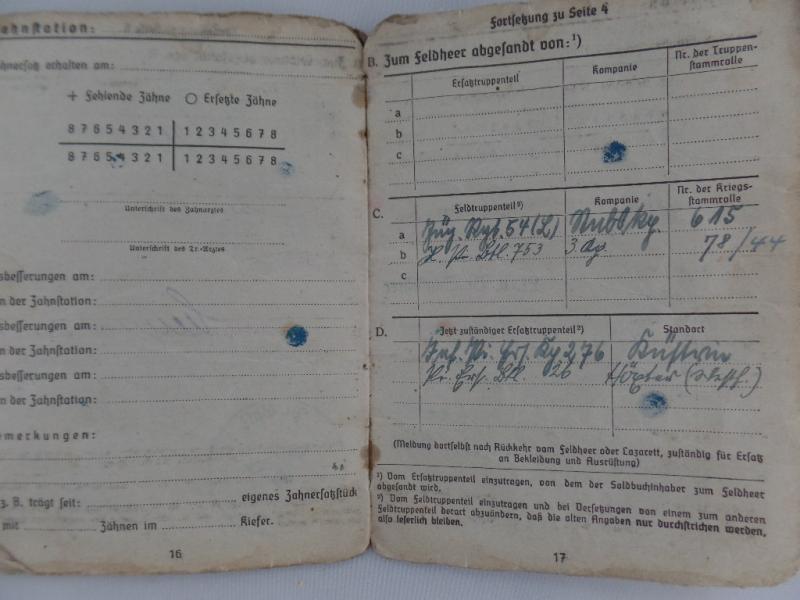 ahnstation:
ahnersatz erhalten am:
+ Fehlende Zähne ○ Ersetzte Zähne
8 7 6 5 4 3 2 1 | 1 2 3 4 5 6 7 8
8 7 6 5 4 3 2 1 | 1 2 3 4 5 6 7 8
Unterschrift des Zahnarztes
Unterschrift des Tr.-Arztes
sbesserungen am:
n der Zahnstation:
sbesserungen am:
n der Zahnstation:
sbesserungen am:
n der Zahnstation:
emerkungen:
z. B. trägt seit: eigenes Zahnersatzstück
mit Zähnen im Kiefer.
16
Fortsetzung zu Seite 4
B. Zum Feldheer abgesandt von:¹)
Ersatztruppenteil Kompanie Nr. der Truppen-
stammrolle
a
b
c
C. Feldtruppenteil²) Kompanie Nr. der Kriegs-
stammrolle
a Rgt. 54 (L) 615
b Btl. 753 3 78/44
c
D. Jetzt zuständiger Ersatztruppenteil²) Standort
Pi. Ers. Kp 276 Küstrin
Pi. Ers. Btl. 26 Höxter (Westf.)
(Meldung dortselbst nach Rückkehr vom Feldheer oder Lazarett, zuständig für Ersatz
an Bekleidung und Ausrüstung)
¹) Vom Ersatztruppenteil einzutragen, von dem der Soldbuchinhaber zum Feldheer
abgesandt wird.
²) Vom Feldtruppenteil einzutragen und bei Versetzungen von einem zum anderen
Feldtruppenteil derart abzuändern, daß die alten Angaben nur durchstrichen werden,
also leserlich bleiben.
17